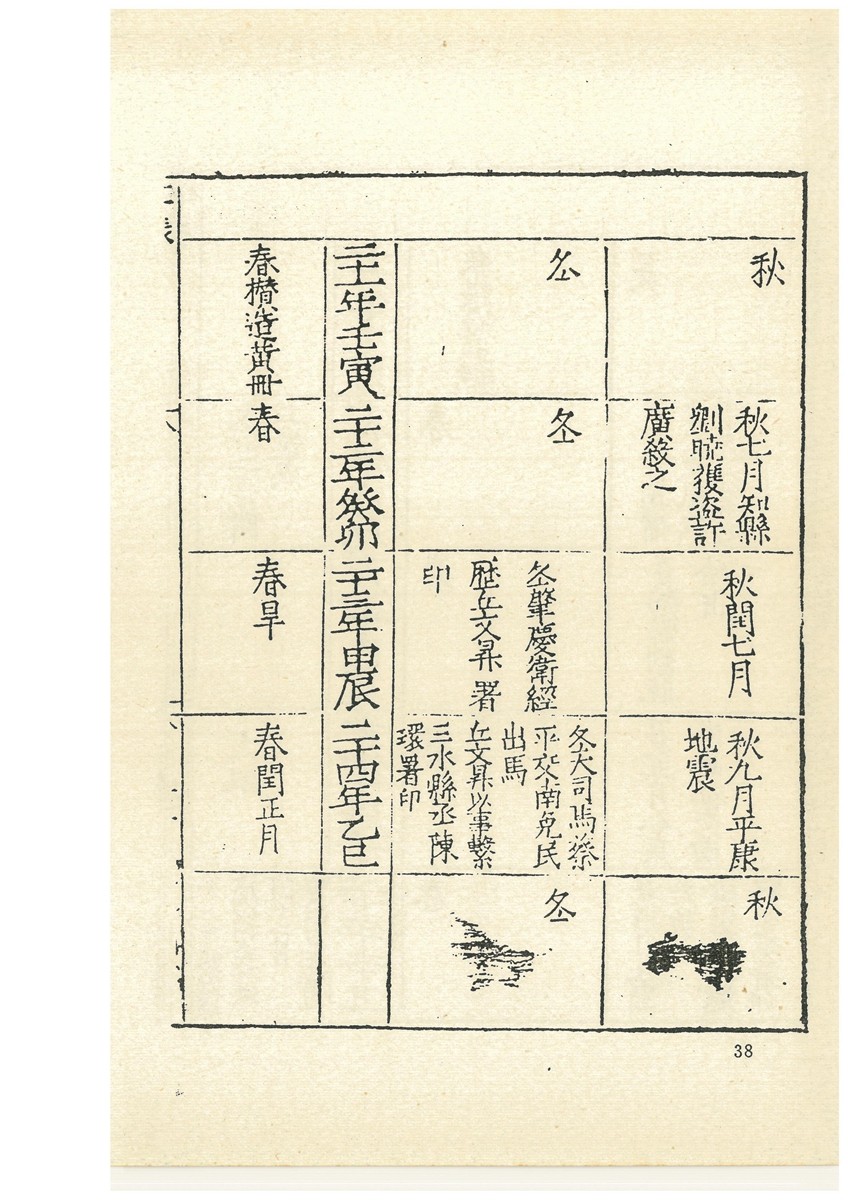 秋
秋七月知縣
劉曉獲盜許
廣殺之
秋閏七月
秋九月平康
地震
秋
冬
冬
冬肇慶衛經
歷丘文昇署
印
冬大司馬蔡
平交南免民
出馬
丘文昇以事繫
三水縣丞陳
環署印
冬
二十一年壬寅
二十二年癸卯
二十三年甲辰
二十四年乙巳
春攢造黃冊
春
春旱
春閏正月
38